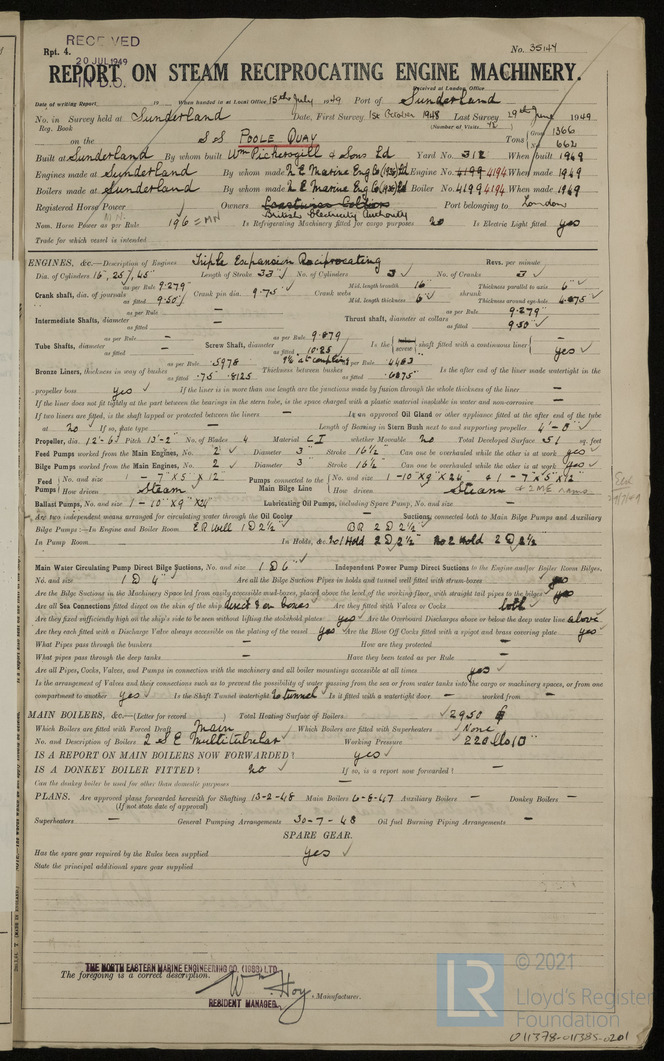 RECEIVED
Rpt. 4. No. 35144
20 JUL 1949
IN D.O.
REPORT ON STEAM RECIPROCATING ENGINE MACHINERY.
Received at London Office
Date of writing Report 19 When handed in at Local Office 15th July 1949 Port of Sunderland
No. in Survey held at Sunderland Date, First Survey 1st October 1948 Last Survey 29th June 1949
Reg. Book (Number of Visits
on the SS POOLE QUAY Tons Gross 1366 Net 662
Built at Sunderland By whom built Wm Pickersgill & Sons Ld Yard No. 312 When built 1949
Engines made at Sunderland By whom made N.E. Marine Eng Co (1938) Ld Engine No. 4199 4194 When made 1949
Boilers made at Sunderland By whom made N.E. Marine Eng Co (1938) Ld Boiler No. 4199 4194 When made 1949
Registered Horse Power Owners British Electricity Authority Port belonging to London
Nom. Horse Power as per Rule 196 = MN Is Refrigerating Machinery fitted for cargo purposes no Is Electric Light fitted yes
Trade for which vessel is intended
ENGINES, &c.—Description of Engines Triple Expansion Reciprocating Revs. per minute
Dia. of Cylinders 16", 25½, 45" Length of Stroke 33" No. of Cylinders 3 No. of Cranks 3
Crank shaft, dia. of journals as per Rule 9.279" as fitted 9.50" Crank pin dia. 9.75 Crank webs Mid. length breadth 16 Mid. length thickness 6" shrunk Thickness parallel to axis 6" Thickness around eye-hole 4.875
Intermediate Shafts, diameter as per Rule — as fitted — Thrust shaft, diameter at collars as per Rule 9.279" as fitted 9.50"
Tube Shafts, diameter as per Rule — as fitted — Screw Shaft, diameter as per Rule 9.879 as fitted 10.25 Is the screw shaft fitted with a continuous liner yes
Bronze Liners, thickness in way of bushes as per Rule .5978 as fitted .75 .8125 Thickness between bushes as per Rule .4483 as fitted .6875" Is the after end of the liner made watertight in the
propeller boss yes If the liner is in more than one length are the junctions made by fusion through the whole thickness of the liner —
If the liner does not fit tightly at the part between the bearings in the stern tube, is the space charged with a plastic material insoluble in water and non-corrosive —
If two liners are fitted, is the shaft lapped or protected between the liners — Is an approved Oil Gland or other appliance fitted at the after end of the tube
shaft no If so, state type — Length of Bearing in Stern Bush next to and supporting propeller 4'-0"
Propeller, dia. 12'-6" Pitch 13'-2" No. of Blades 4 Material C I whether Moveable no Total Developed Surface 51 sq. feet
Feed Pumps worked from the Main Engines, No. 2 Diameter 3" Stroke 16½" Can one be overhauled while the other is at work yes
Bilge Pumps worked from the Main Engines, No. 2 Diameter 3" Stroke 16½ Can one be overhauled while the other is at work yes
Feed Pumps No. and size 1 - 7" X 5" X 12" How driven Steam Pumps connected to the Main Bilge Line No. and size 1-10"X9"X24" & 1-7"X5"X12" How driven Steam
Ballast Pumps, No. and size 1-10"X9"X24 Lubricating Oil Pumps, including Spare Pump, No. and size —
Are two independent means arranged for circulating water through the Oil Cooler — Suctions, connected both to Main Bilge Pumps and Auxiliary
Bilge Pumps:—In Engine and Boiler Room E R Well 1 D 2½ B R 2 D 2½
In Pump Room In Holds, &c. No1 Hold 2 D 2½ No 2 Hold 2 D 2½
Main Water Circulating Pump Direct Bilge Suctions, No. and size 1 D 6" Independent Power Pump Direct Suctions to the Engine and/or Boiler Room Bilges,
No. and size 1 D 4" Are all the Bilge Suction Pipes in holds and tunnel well fitted with strum-boxes yes
Are the Bilge Suctions in the Machinery Space led from easily accessible mud-boxes, placed above the level of the working floor, with straight tail pipes to the bilges yes
Are all Sea Connections fitted direct on the skin of the ship direct & on boxes Are they fitted with Valves or Cocks both
Are they fixed sufficiently high on the ship's side to be seen without lifting the stokehold plates yes Are the Overboard Discharges above or below the deep water line above
Are they each fitted with a Discharge Valve always accessible on the plating of the vessel yes Are the Blow Off Cocks fitted with a spigot and brass covering plate yes
What Pipes pass through the bunkers — How are they protected —
What pipes pass through the deep tanks — Have they been tested as per Rule —
Are all Pipes, Cocks, Valves, and Pumps in connection with the machinery and all boiler mountings accessible at all times yes
Is the arrangement of Valves and their connections such as to prevent the possibility of water passing from the sea or from water tanks into the cargo or machinery spaces, or from one
compartment to another yes Is the Shaft Tunnel watertight No tunnel Is it fitted with a watertight door — worked from —
MAIN BOILERS, &c.—(Letter for record ) Total Heating Surface of Boilers 2950
Which Boilers are fitted with Forced Draft Main Which Boilers are fitted with Superheaters None
No. and Description of Boilers 2 S E Multitubular Working Pressure 220 lb/□"
IS A REPORT ON MAIN BOILERS NOW FORWARDED? yes
IS A DONKEY BOILER FITTED? no If so, is a report now forwarded? —
Can the donkey boiler be used for other than domestic purposes —
PLANS. Are approved plans forwarded herewith for Shafting 13-2-48 Main Boilers 6-8-47 Auxiliary Boilers — Donkey Boilers —
(If not state date of approval)
Superheaters — General Pumping Arrangements 30-7-48 Oil fuel Burning Piping Arrangements —
SPARE GEAR.
Has the spare gear required by the Rules been supplied yes
State the principal additional spare gear supplied
THE NORTH EASTERN MARINE ENGINEERING CO. (1938) LTD.
The foregoing is a correct description.
Wm Hoy
RESIDENT MANAGER. Manufacturer.
LR
© 2021
Lloyd's Register
Foundation
011378-011385-0201